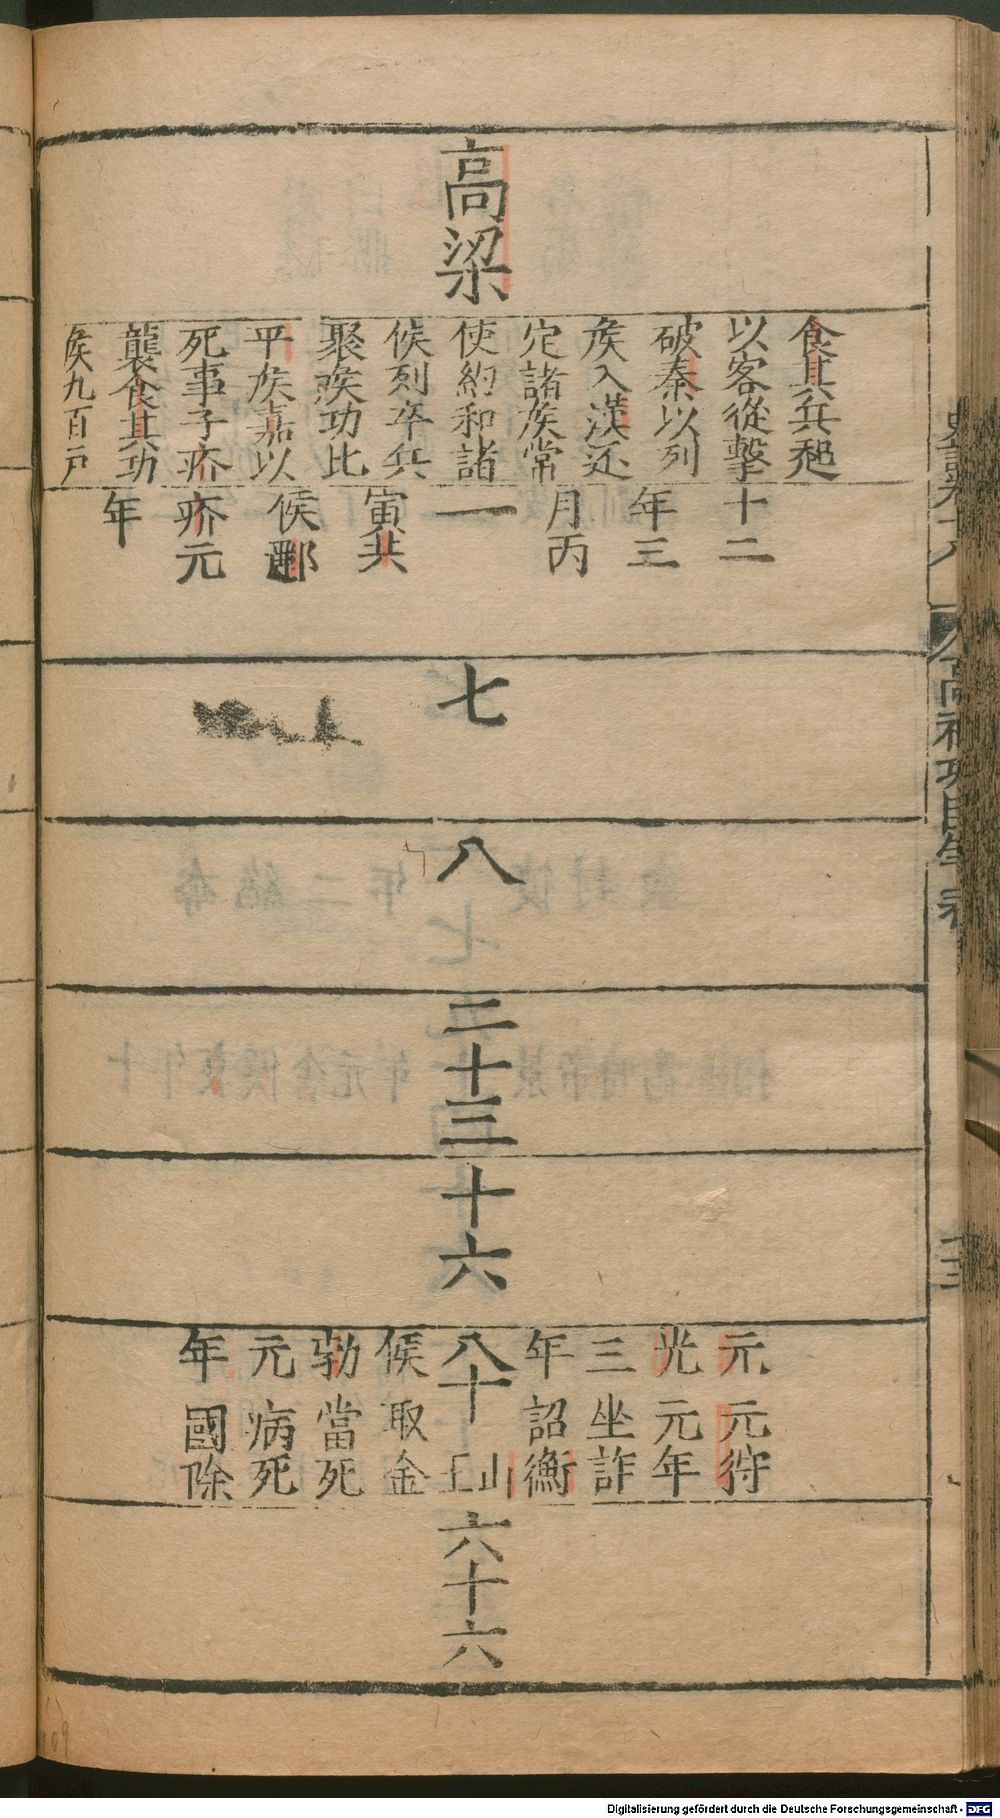 高梁
食其兵起
以客從擊
破秦以列
矦入漢还
定諸矦常
使約和諸
候列卒兵
聚矦功比
平矦嘉以
死事子疥
襲食其功
矦九百戸
十二
年三
月丙
一
寅共
侯酈
疥元
年
七
八
二十三
十六
元 元狩
光 元年
三 坐詐
年 詔衡
八十 山王
侯 取金
勃 當死
元 病死
年 國除
六十六
高祖功臣年表
Digitalisierung gefördert durch die Deutsche Forschungsgemeinschaft - DFG